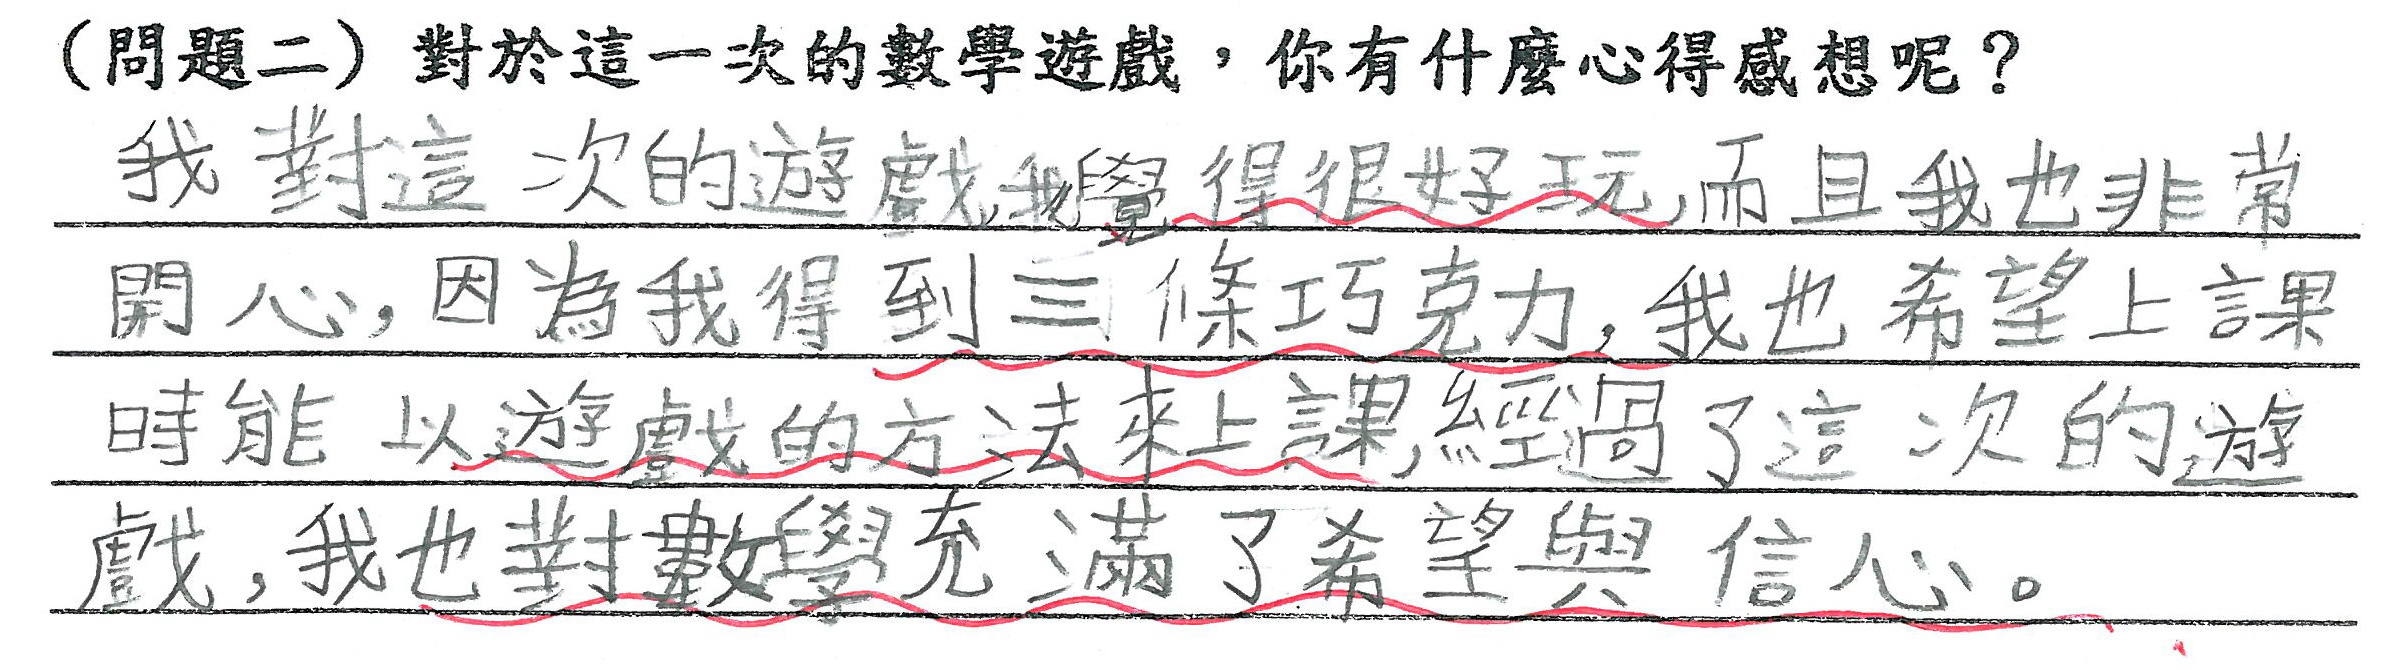 （問題二）對於這一次的數學遊戲，你有什麼心得感想呢？
我對這次的遊戲,我覺得很好玩,而且我也非常
開心,因為我得到三條巧克力,我也希望上課
時能以遊戲的方法來上課,經過了這次的遊
戲,我也對數學充滿了希望與信心。